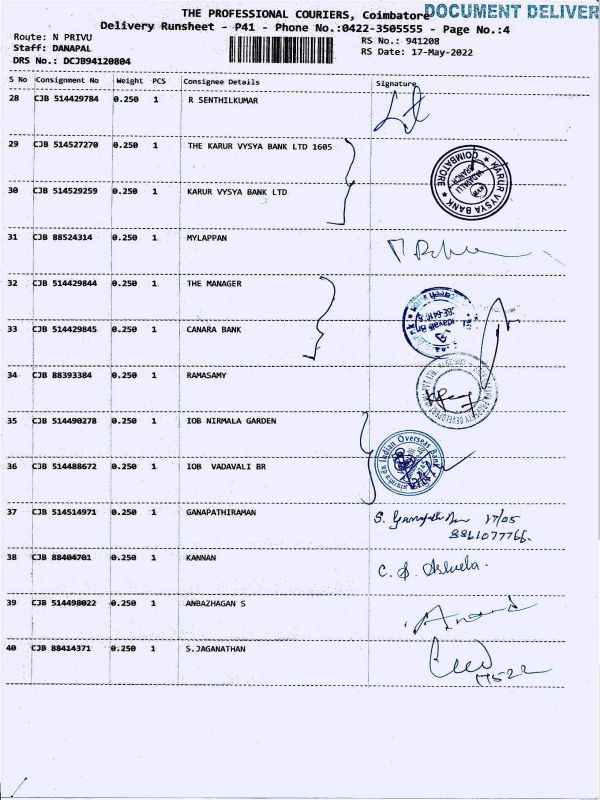 THE PROFESSIONAL COURIERS, Coimbatore
DOCUMENT DELIVER
Delivery Runsheet - P41 - Phone No.:0422-3505555 - Page No.:4
Route: N PRIVU
RS No.: 941208
Staff: DANAPAL
RS Date: 17-May-2022
DRS No.: DCJB94120804
S No Consignment No Weight PCS Consignee Details Signature
28 CJB 514429784 0.250 1 R SENTHILKUMAR
29 CJB 514527270 0.250 1 THE KARUR VYSYA BANK LTD 1605
KARUR VYSYA BANK
COIMBATORE
30 CJB 514529259 0.250 1 KARUR VYSYA BANK LTD
31 CJB 88524314 0.250 1 MYLAPPAN
32 CJB 514429844 0.250 1 THE MANAGER
33 CJB 514429845 0.250 1 CANARA BANK
34 CJB 88393384 0.250 1 RAMASAMY
35 CJB 514490278 0.250 1 IOB NIRMALA GARDEN
Indian Overseas Bank
36 CJB 514488672 0.250 1 IOB VADAVALI BR
37 CJB 514514971 0.250 1 GANAPATHIRAMAN
17/05
8861077766.
38 CJB 88404701 0.250 1 KANNAN
39 CJB 514498022 0.250 1 ANBAZHAGAN S
40 CJB 88414371 0.250 1 S.JAGANATHAN